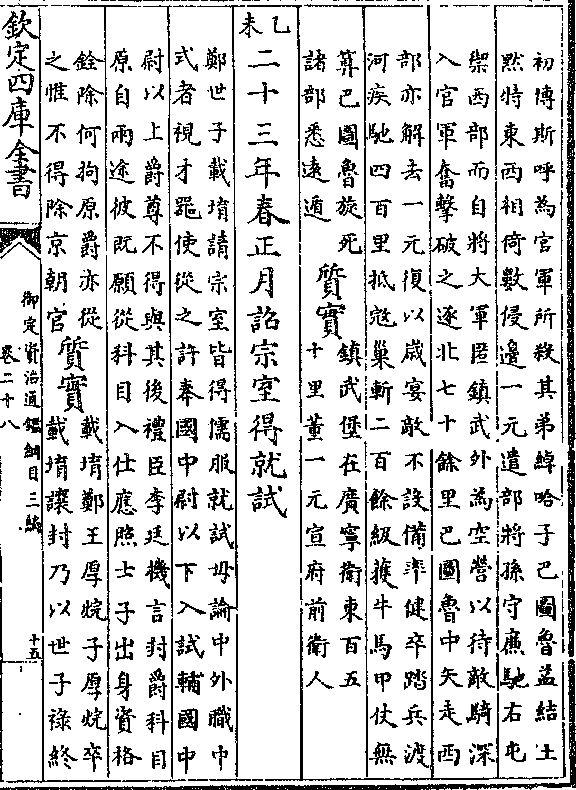 初博斯呼為官軍所殺其弟綽哈子巴圖魯益結土
黙特東西相倚數侵邊一元遣部將孫守㢘馳右屯
禦西部而自將大軍匿鎮武外為空營以待敵騎深
入官軍奮擊破之逐北七十餘里巴圖魯中矢走西
部亦解去一元復以歲宴敵不設備率健卒踏兵渡
河疾馳四百里抵寇巢斬二百餘級獲牛馬甲仗無
算巴圖魯旋死
諸部悉遠遁
質實
鎮武堡在廣寧衛東百五
十里董一元宣府前衛人
乙未
二十三年春正月詔宗室得就試
鄭世子載堉請宗室皆得儒服就試毋論中外職中
式者視才器使從之許奉國中尉以下入試輔國中
尉以上爵尊不得與其後禮臣李廷機言封爵科目
原自兩途彼既願從科目入仕應照士子出身資格
銓除何拘原爵亦從
之惟不得除京朝官
質實
載堉鄭王厚烷子厚烷卒
載堉讓封乃以世子祿終
欽定四庫全書
御定資治通鑑綱目三編
卷二十八
十五